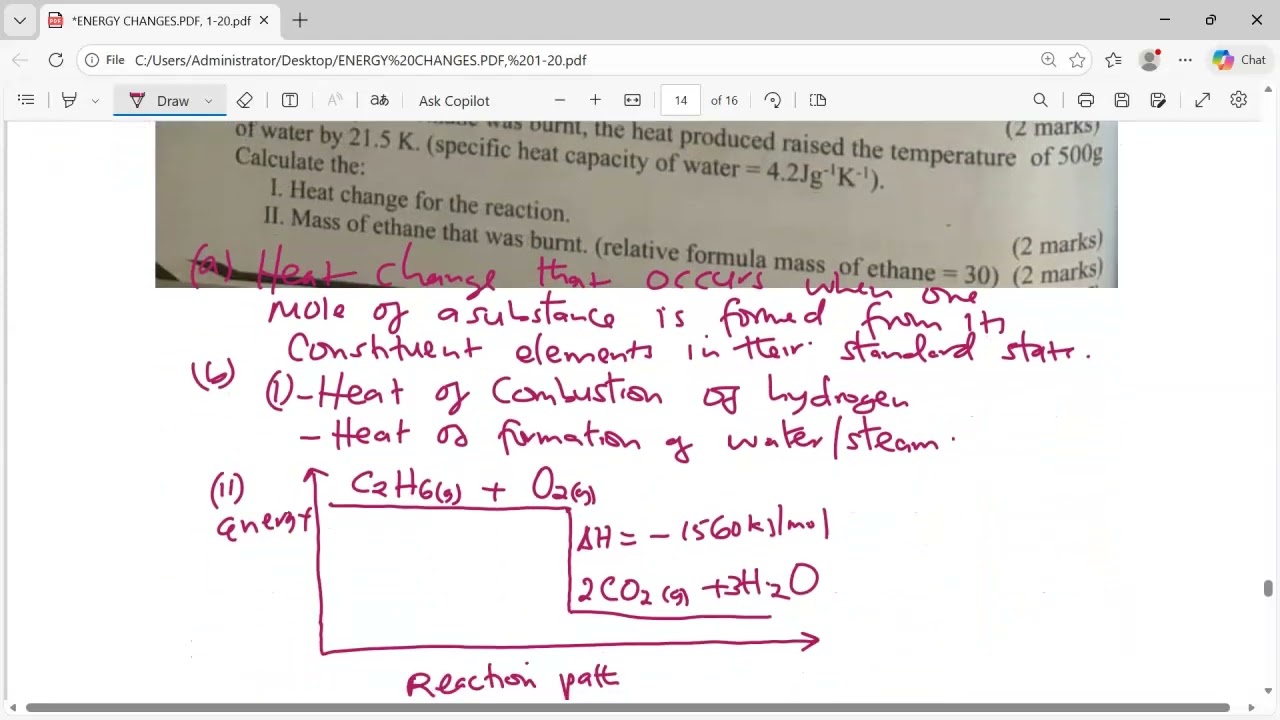 *ENERGY CHANGES.PDF, 1-20.pdf
File C:/Users/Administrator/Desktop/ENERGY%20CHANGES.PDF,%201-20.pdf
Chat
Draw
Ask Copilot
14 of 16
was burnt, the heat produced raised the temperature of 500g (2 marks)
of water by 21.5 K. (specific heat capacity of water = 4.2Jg⁻¹K⁻¹).
Calculate the:
I. Heat change for the reaction. (2 marks)
II. Mass of ethane that was burnt. (relative formula mass of ethane = 30) (2 marks)
(a) Heat change that occurs when one
mole of a substance is formed from its
constituent elements in their standard state.
(b) (i) - Heat of Combustion of hydrogen
- Heat of formation of water/steam.
(ii) C₂H₆(g) + O₂(g)
energy
ΔH = -1560kJ/mol
2CO₂(g) + 3H₂O
Reaction path